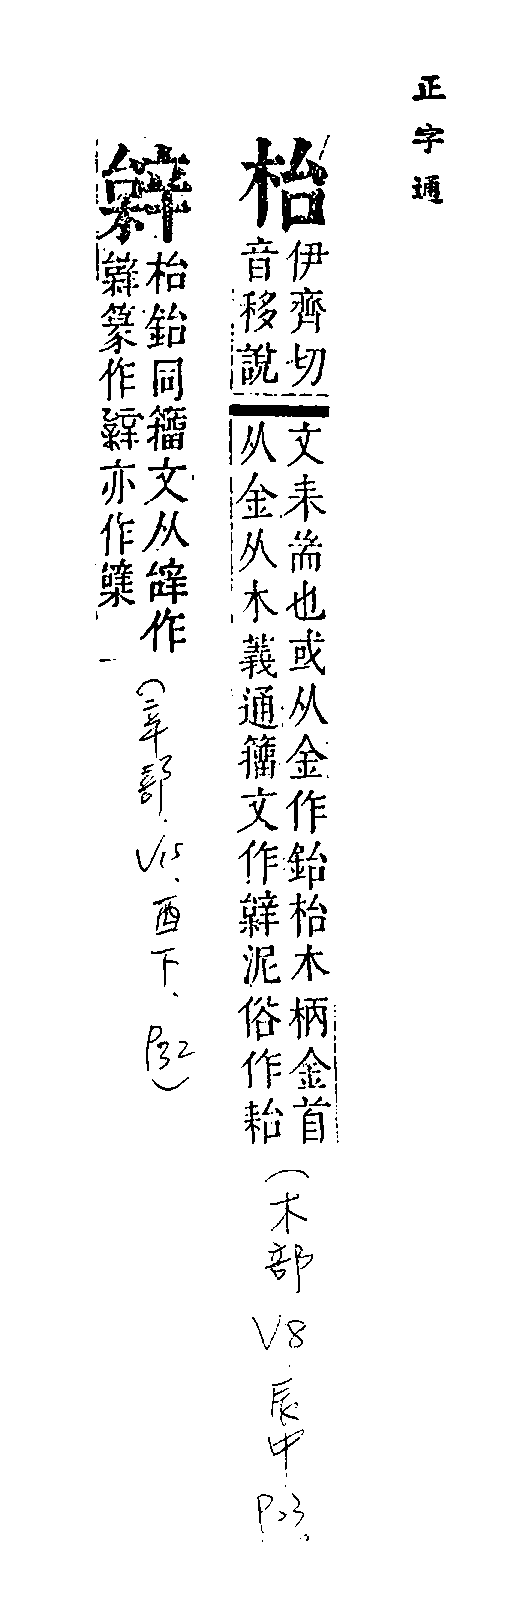 正字通
枱
伊齊切
音移說
文耒耑也或从金作鈶枱木柄金首
从金从木義通籀文作𨐖泥俗作耛
枱鈶同籀文从辝作
篆作 亦作
(辛部.V15、酉下、P32)
(木部 V8.辰中 P23.)